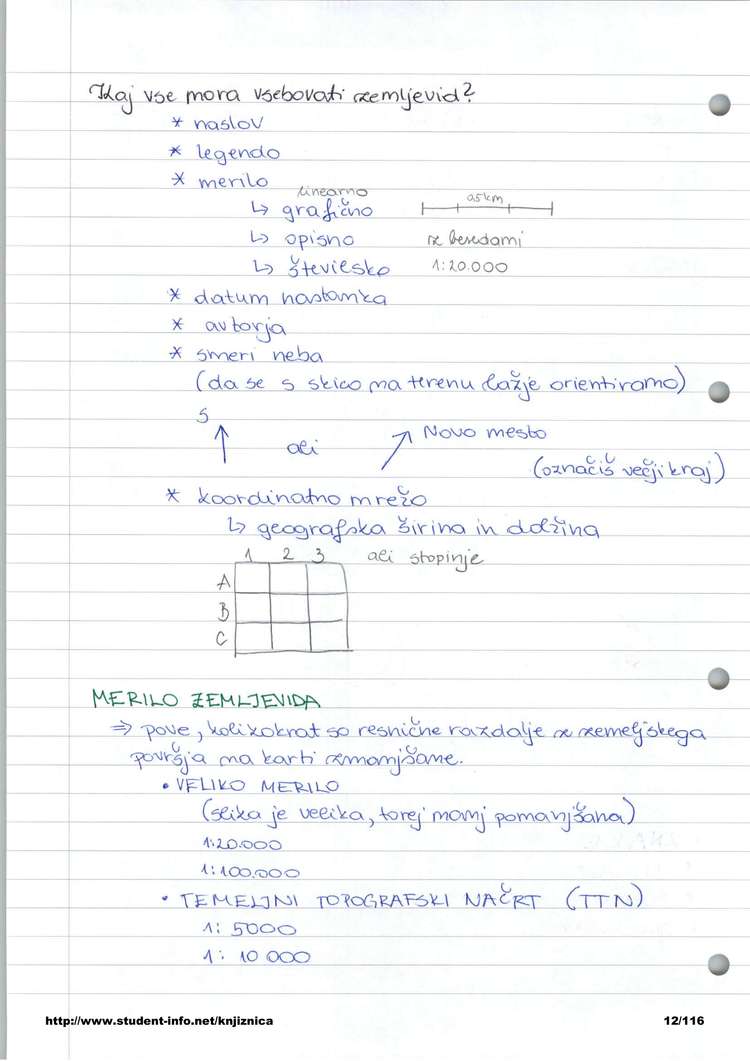 Kaj vse mora vsebovati zemljevid?
* naslov
* legendo
* merilo
linearno
↳ grafično 0,5km
↳ opisno z besedami
↳ številsko 1:20.000
* datum nastanka
* avtorja
* smeri neba
(da se s skico na terenu lažje orientiramo)
S
ali Novo mesto
(označiš večji kraj)
* koordinatno mrežo
↳ geografska širina in dolžina
1 2 3 ali stopinje
A
B
C
MERILO ZEMLJEVIDA
⇒ pove, kolikokrat so resnične razdalje z zemeljskega
površja na karti zmanjšane.
• VELIKO MERILO
(slika je velika, torej manj pomanjšana)
1:20.000
1:100.000
• TEMELJNI TOPOGRAFSKI NAČRT (TTN)
1: 5000
1: 10 000
http://www.student-info.net/knjiznica 12/116